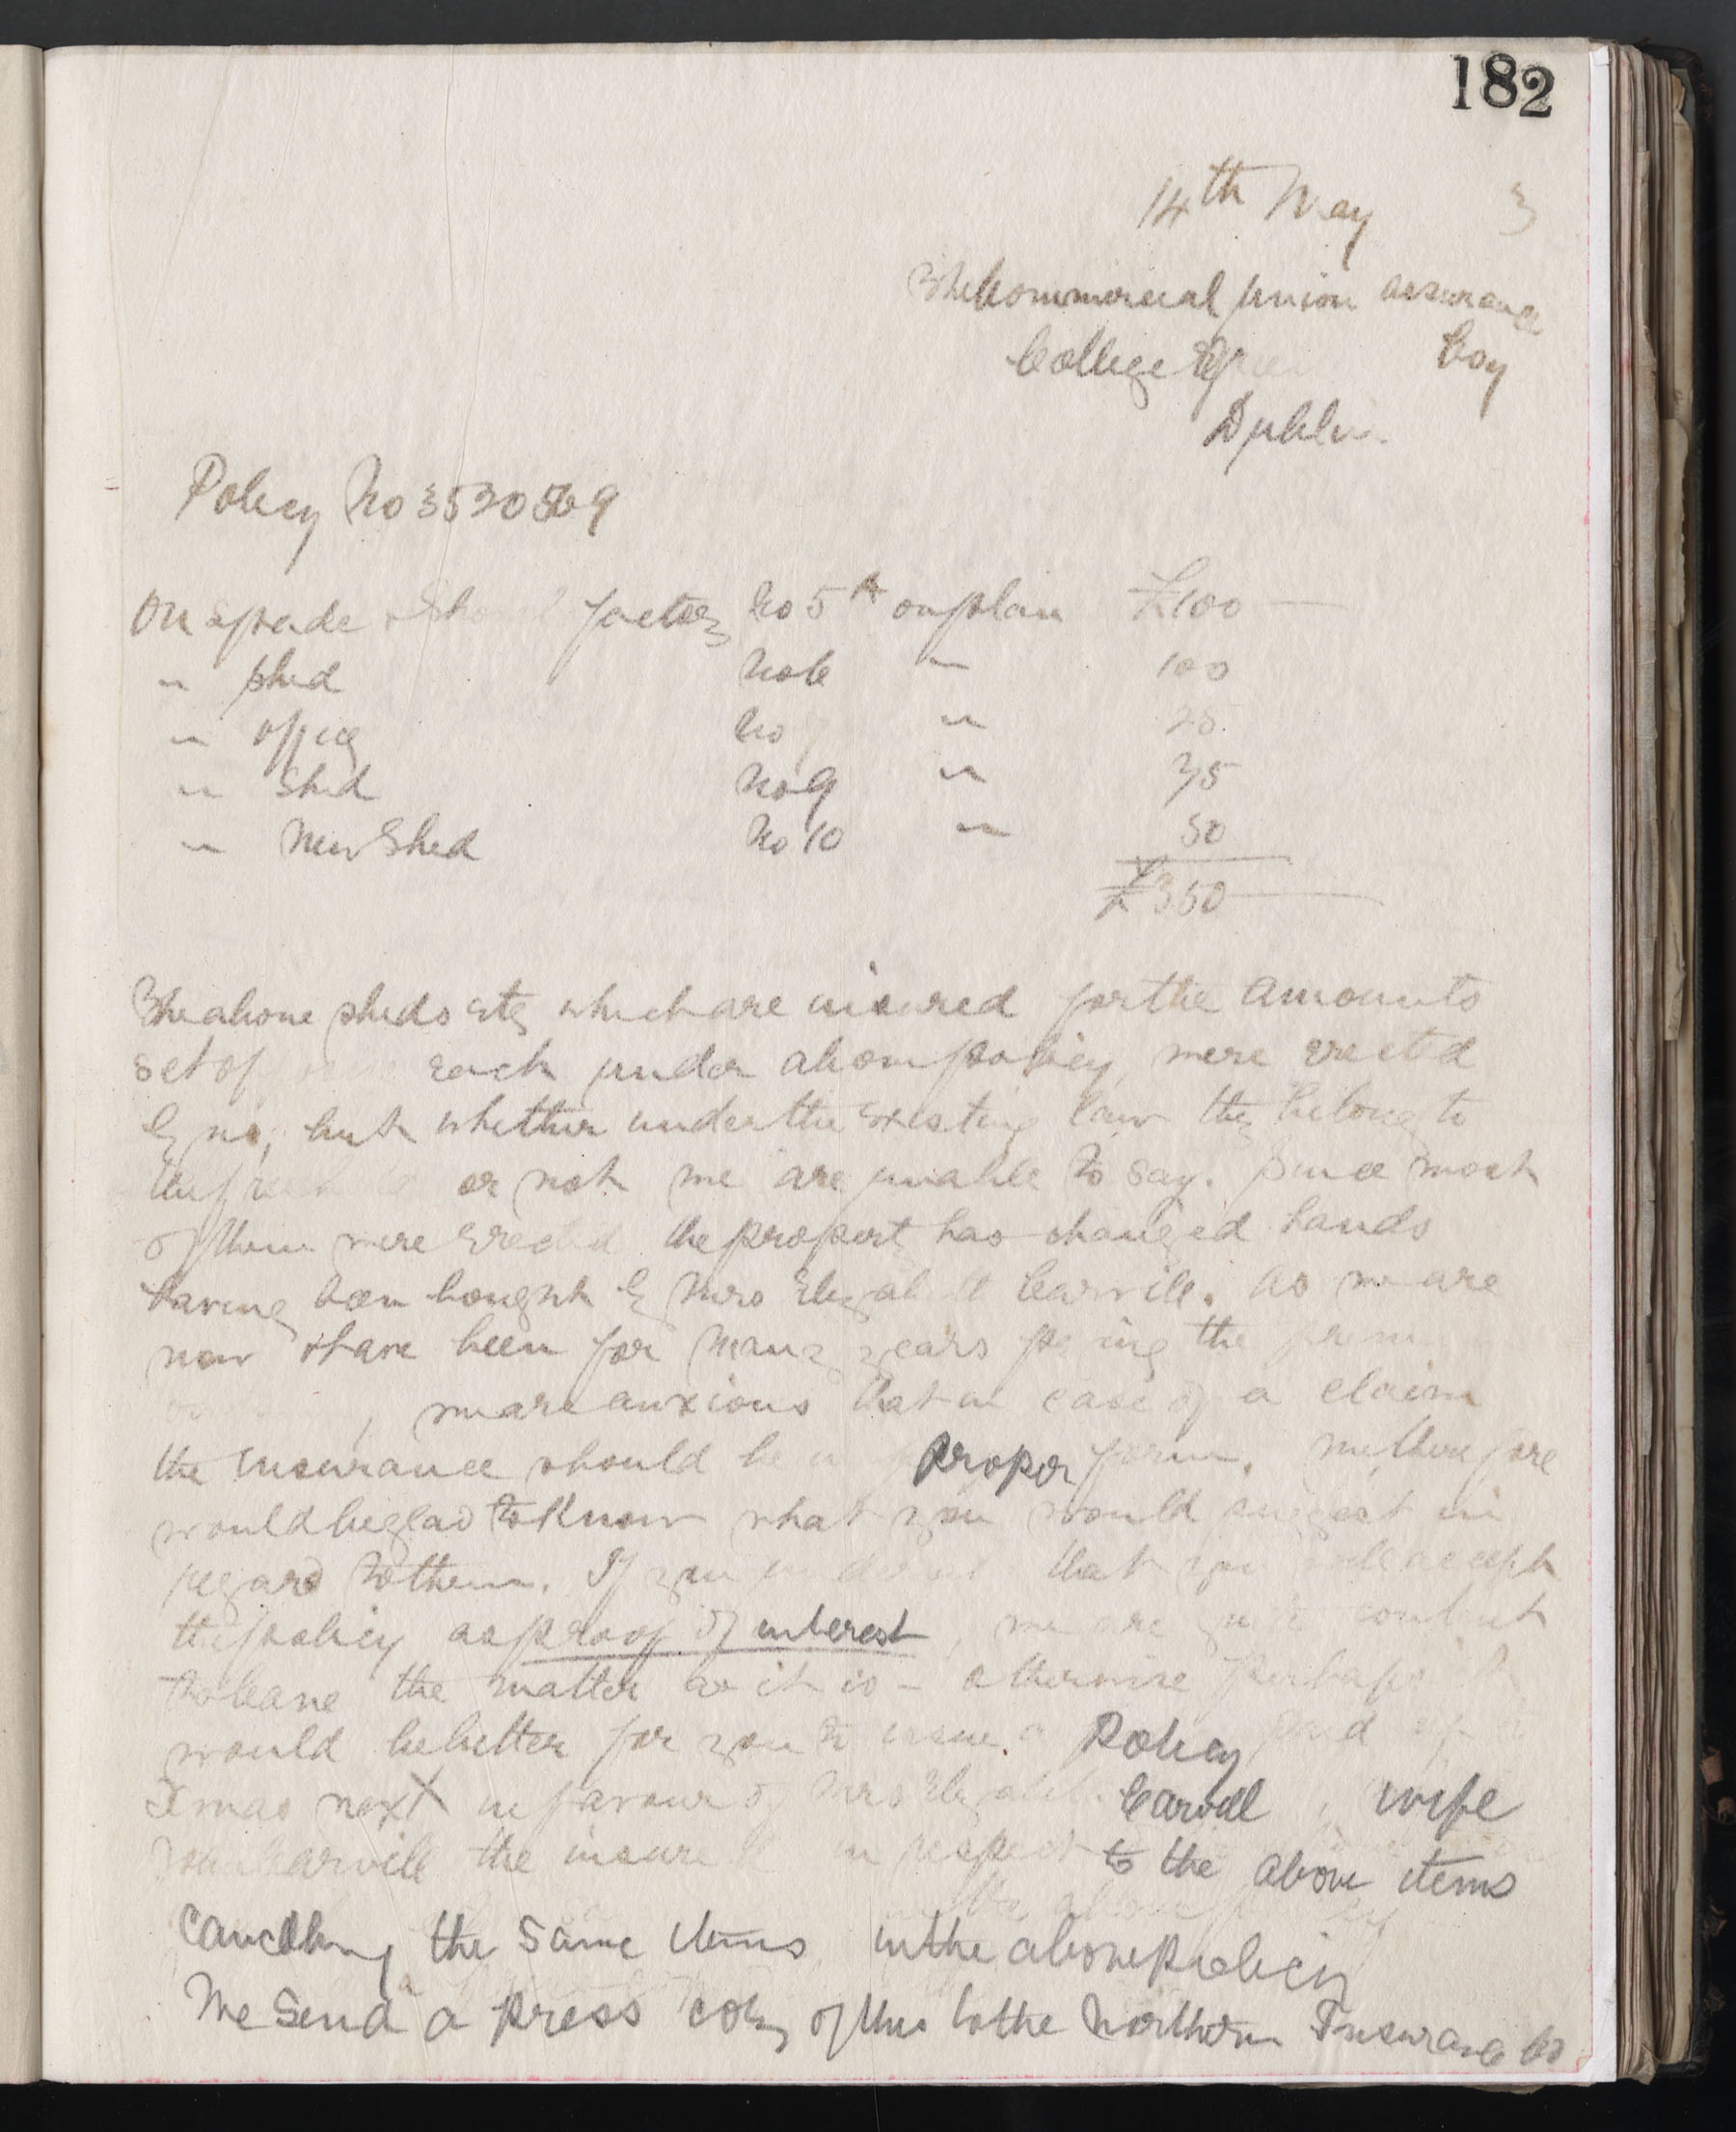 182
14th May 3
The Commercial Union Assurance
College Green Coy
Dublin.
Policy No 3530569
On Spade & Shovel factory No 5A on plan £100
" shed No 6 " 100
" office No " 25
" Shed No 9 " 75
" New Shed No 10 " 50
£350
The above sheds etc which are insured for the amounts
set off each under above policy, were erected
by us, but whether under the existing law they belong to
the freehold or not we are unable to say. Since most
of them were erected the property has changed hands
having been bought by Mrs Elizabeth Carvill. As we are
now & have been for many years paying the
, we are anxious that in case of a claim
the Insurance should be in proper form. We therefore
would be glad to know what you would suggest in
regard to them. If you that you will accept
the policy as proof of interest, we are quite content
to leave the matter as it is - otherwise perhaps
would be better for you to issue a Policy paid up
Xmas next in favour of Mrs Elizabeth Carvill, wife
John Carvill the insured in respect to the above items
cancelling the same items in the above policy
We send a press copy of this to the Northern Insurance Co